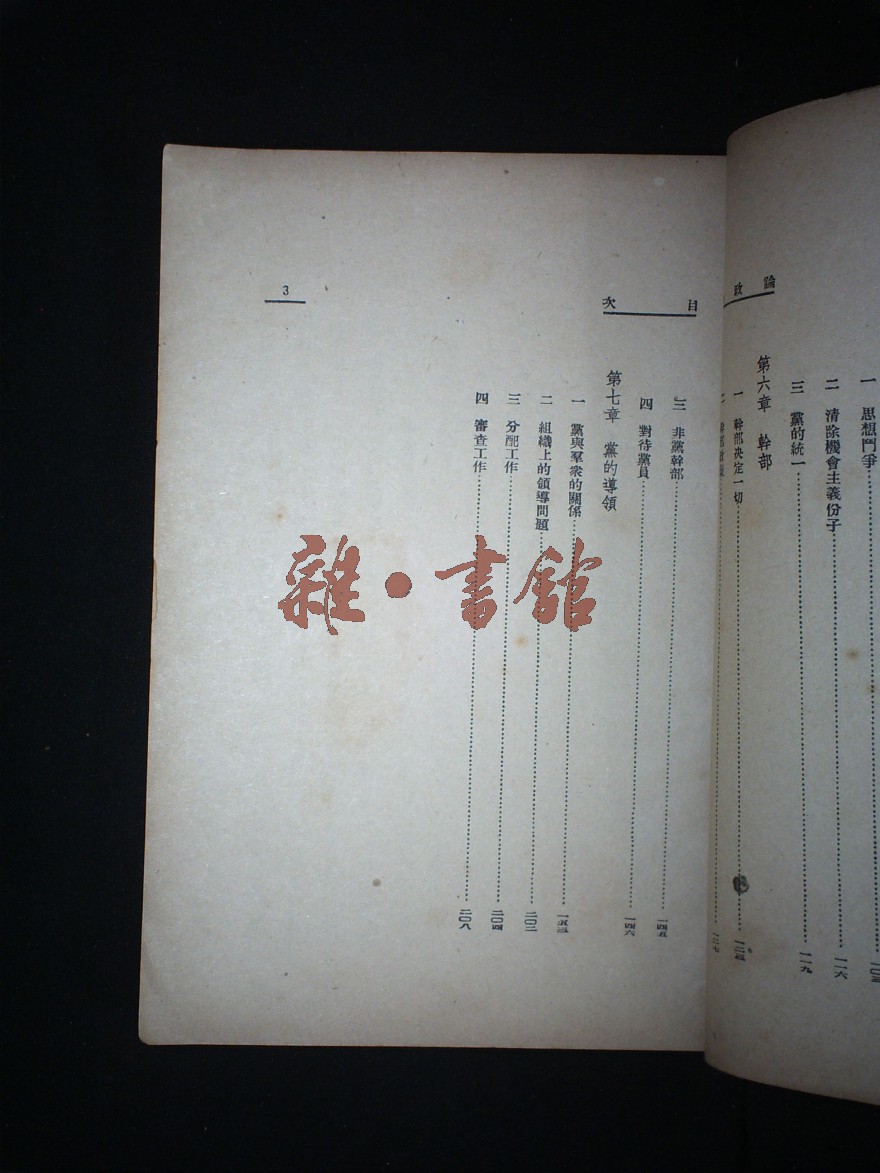 政論
一 思想鬥爭……一〇三
二 清除機會主義份子……一一六
三 黨的統一……一一九
第六章 幹部
一 幹部決定一切……一二五
目次
三 非黨幹部……一四五
四 對待黨員……一四六
第七章 黨的導領
一 黨與羣衆的關係……一五三
二 組織上的領導問題……二〇二
三 分配工作……二〇四
四 審查工作……二〇八
3
雜·書館